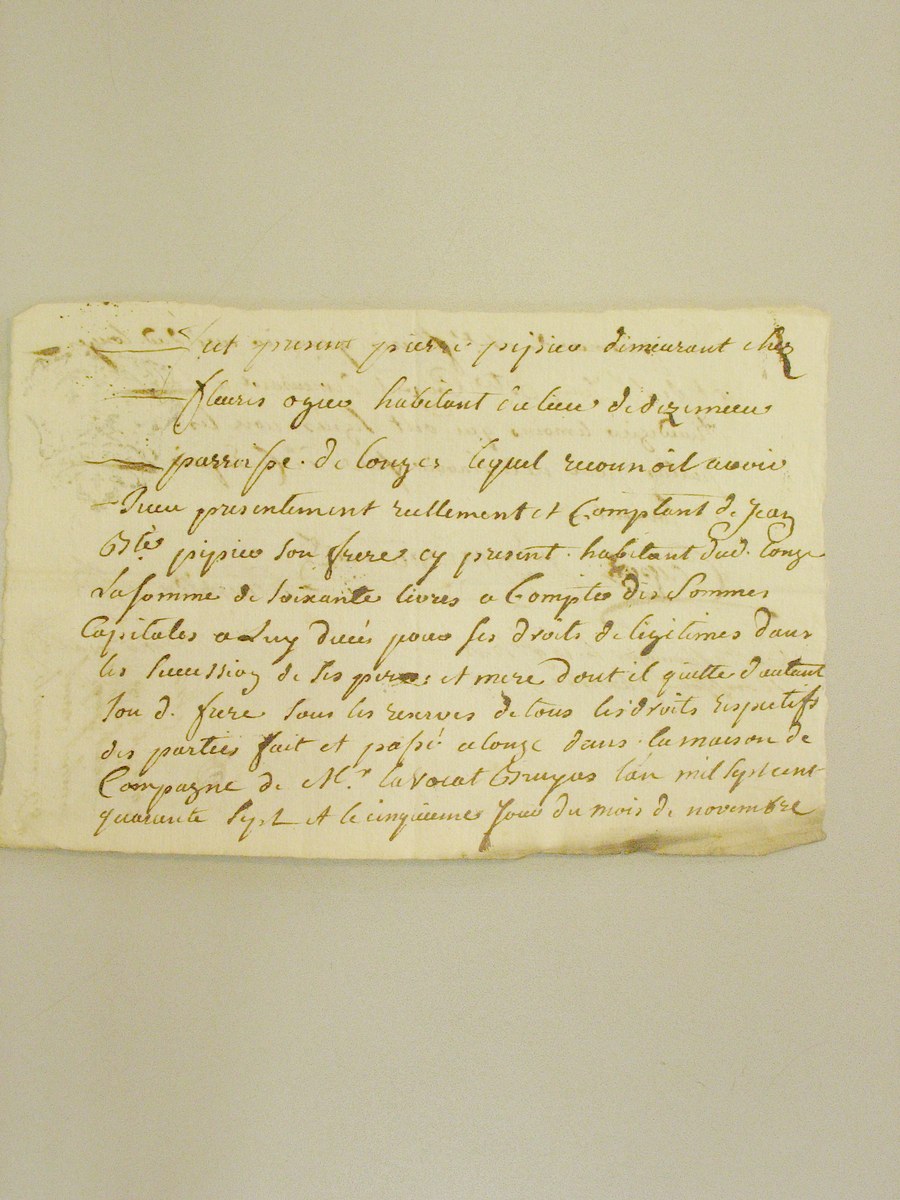 fut present pierre pipieu dimeurant chez
fleuris ogieu habitant du lieu de dizimieu
parroisse de longes lequel reconnoit avoir
Receu presentement reellement et Comptant de Jean
Bte pipieu son frere cy present habitant dud. Longe
La somme de soixante livres a Compte des Sommes
Capitales a Luy dues pour ses droits de legitimes dans
les sucession de ses peres et mere dont il quitte d'autant
son d. frere sous les reserves de tous les droits respectifs
des parties fait et passé a longe dans la maison de
Campagne de Mr. lavocat l'an mil sept cent
quarante sept et le cinquieme Jour du mois de novembre